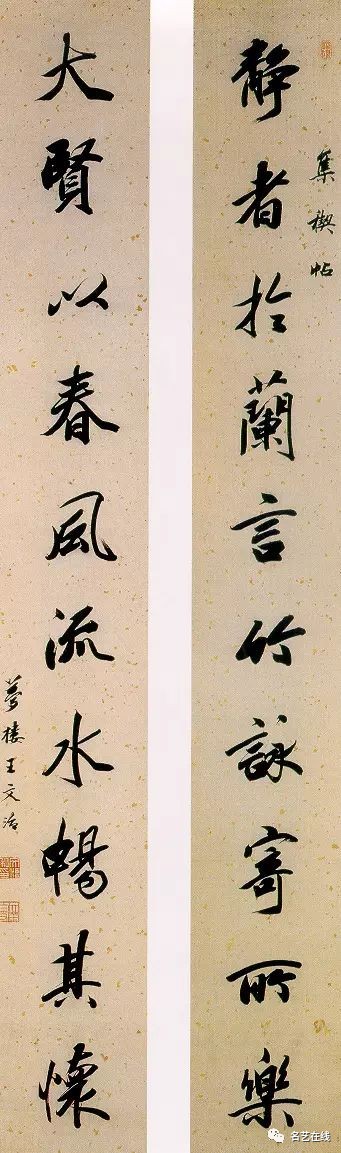 集禊帖
靜者於蘭言竹詠寄所樂
大賢以春風流水暢其懷
夢樓王文治
名艺在线